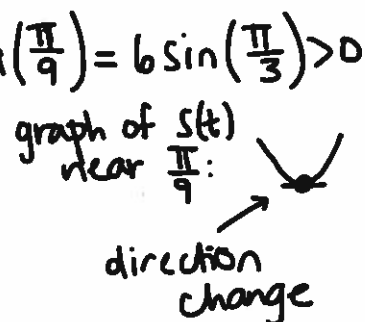 a(π/9) = 6 sin(π/3) > 0
graph of s(t)
near π/9:
direction
change